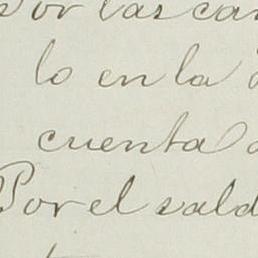 Por las can
lo en la
cuenta
Por el sald